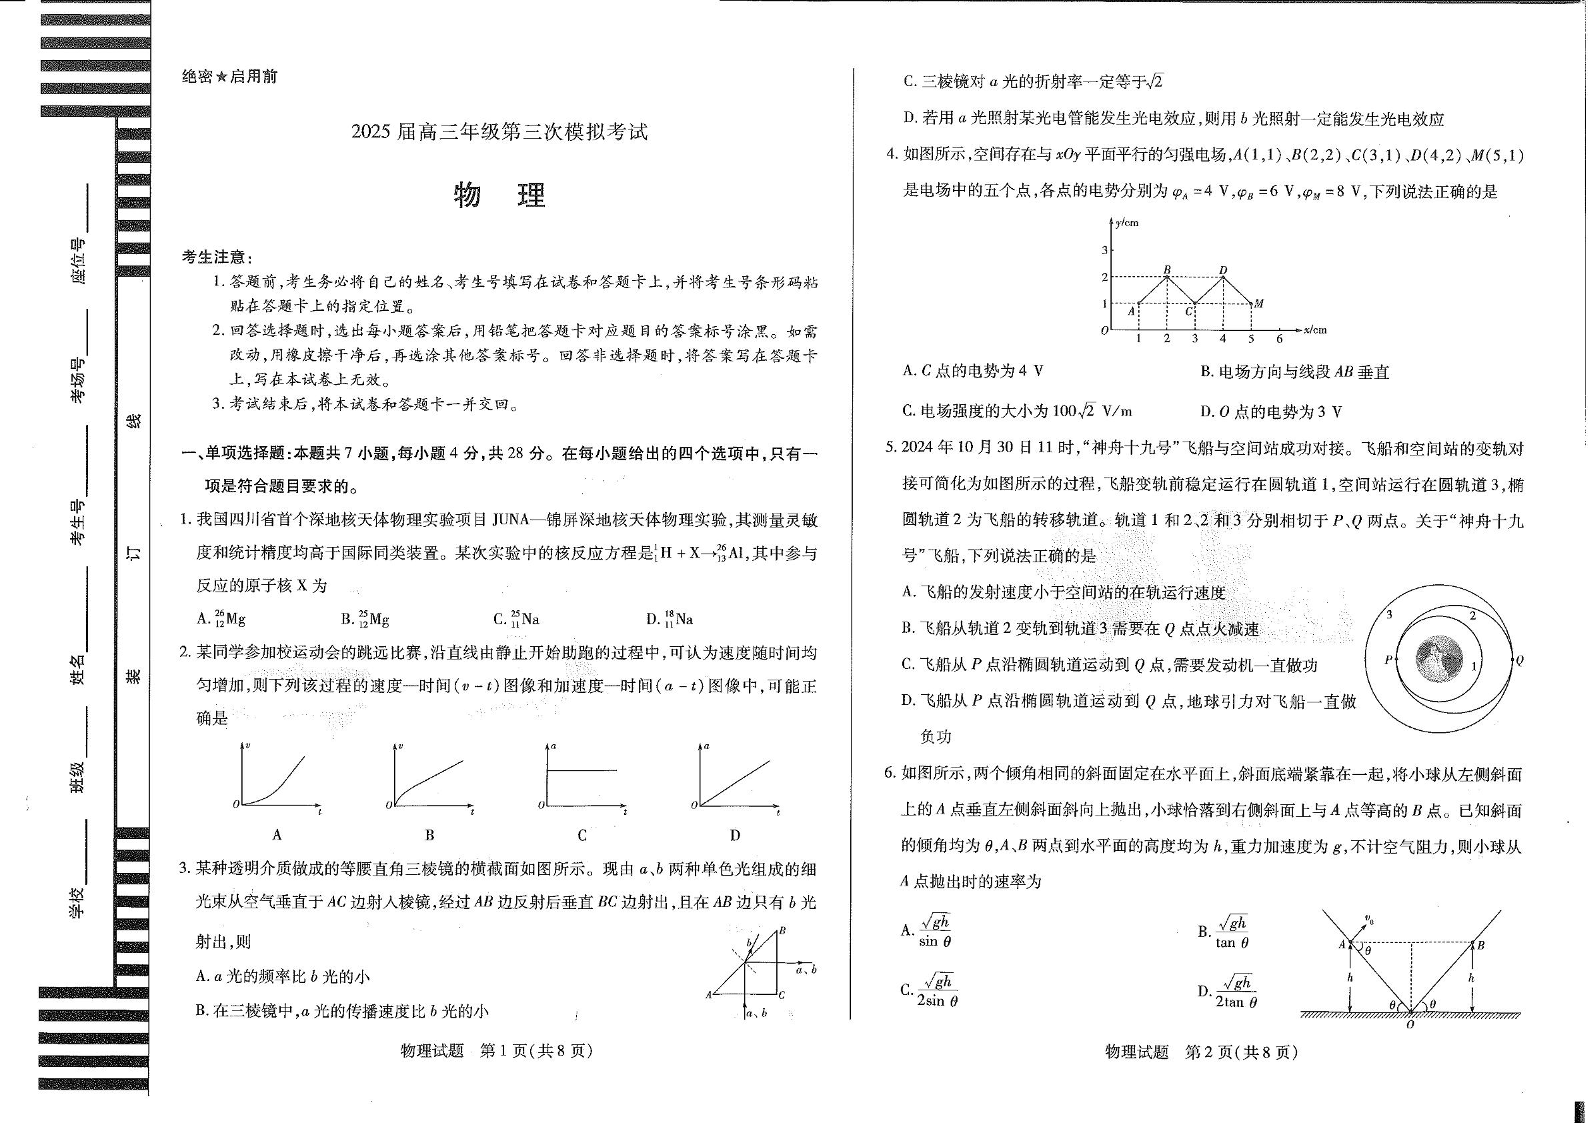 绝密★启用前
2025 届高三年级第三次模拟考试
物 理
考生注意：
1. 答题前，考生务必将自己的姓名、考生号填写在试卷和答题卡上，并将考生号条形码粘
贴在答题卡上的指定位置。
2. 回答选择题时，选出每小题答案后，用铅笔把答题卡对应题目的答案标号涂黑。如需
改动，用橡皮擦干净后，再选涂其他答案标号。回答非选择题时，将答案写在答题卡
上，写在本试卷上无效。
3. 考试结束后，将本试卷和答题卡一并交回。
一、单项选择题：本题共 7 小题，每小题 4 分，共 28 分。在每小题给出的四个选项中，只有一
项是符合题目要求的。
1. 我国四川省首个深地核天体物理实验项目 JUNA—锦屏深地核天体物理实验，其测量灵敏
度和统计精度均高于国际同类装置。某次实验中的核反应方程是¹₁H + X→²⁶₁₃Al，其中参与
反应的原子核 X 为
A. ²⁶₁₂Mg B. ²⁵₁₂Mg C. ²⁵₁₁Na D. ¹⁸₁₁Na
2. 某同学参加校运动会的跳远比赛，沿直线由静止开始助跑的过程中，可认为速度随时间均
匀增加，则下列该过程的速度—时间(v - t)图像和加速度—时间(a - t)图像中，可能正
确是
v O t v O t a O t a O t
A B C D
3. 某种透明介质做成的等腰直角三棱镜的横截面如图所示。现由 a、b 两种单色光组成的细
光束从空气垂直于 AC 边射入棱镜，经过 AB 边反射后垂直 BC 边射出，且在 AB 边只有 b 光
射出，则
A. a 光的频率比 b 光的小
B. 在三棱镜中，a 光的传播速度比 b 光的小
b B a、b A C a、b
物理试题 第 1 页(共 8 页)
C. 三棱镜对 a 光的折射率一定等于√2
D. 若用 a 光照射某光电管能发生光电效应，则用 b 光照射一定能发生光电效应
4. 如图所示，空间存在与 xOy 平面平行的匀强电场，A(1,1)、B(2,2)、C(3,1)、D(4,2)、M(5,1)
是电场中的五个点，各点的电势分别为 φA =4 V，φB =6 V，φM =8 V，下列说法正确的是
y/cm
3
2 B D
1 A C M
O 1 2 3 4 5 6 x/cm
A. C 点的电势为 4 V B. 电场方向与线段 AB 垂直
C. 电场强度的大小为 100√2 V/m D. O 点的电势为 3 V
5. 2024 年 10 月 30 日 11 时，“神舟十九号”飞船与空间站成功对接。飞船和空间站的变轨对
接可简化为如图所示的过程，飞船变轨前稳定运行在圆轨道 1，空间站运行在圆轨道 3，椭
圆轨道 2 为飞船的转移轨道。轨道 1 和 2、2 和 3 分别相切于 P、Q 两点。关于“神舟十九
号”飞船，下列说法正确的是
A. 飞船的发射速度小于空间站的在轨运行速度
B. 飞船从轨道 2 变轨到轨道 3 需要在 Q 点点火减速
C. 飞船从 P 点沿椭圆轨道运动到 Q 点，需要发动机一直做功
D. 飞船从 P 点沿椭圆轨道运动到 Q 点，地球引力对飞船一直做
负功
3 2 P 1 Q
6. 如图所示，两个倾角相同的斜面固定在水平面上，斜面底端紧靠在一起，将小球从左侧斜面
上的 A 点垂直左侧斜面斜向上抛出，小球恰落到右侧斜面上与 A 点等高的 B 点。已知斜面
的倾角均为 θ，A、B 两点到水平面的高度均为 h，重力加速度为 g，不计空气阻力，则小球从
A 点抛出时的速率为
A. √gh/sin θ B. √gh/tan θ
C. √gh/2sin θ D. √gh/2tan θ
v₀ A θ B h h θ θ O
物理试题 第 2 页(共 8 页)
座位号
考场号
考生号
姓名
班级
学校
线
订
装